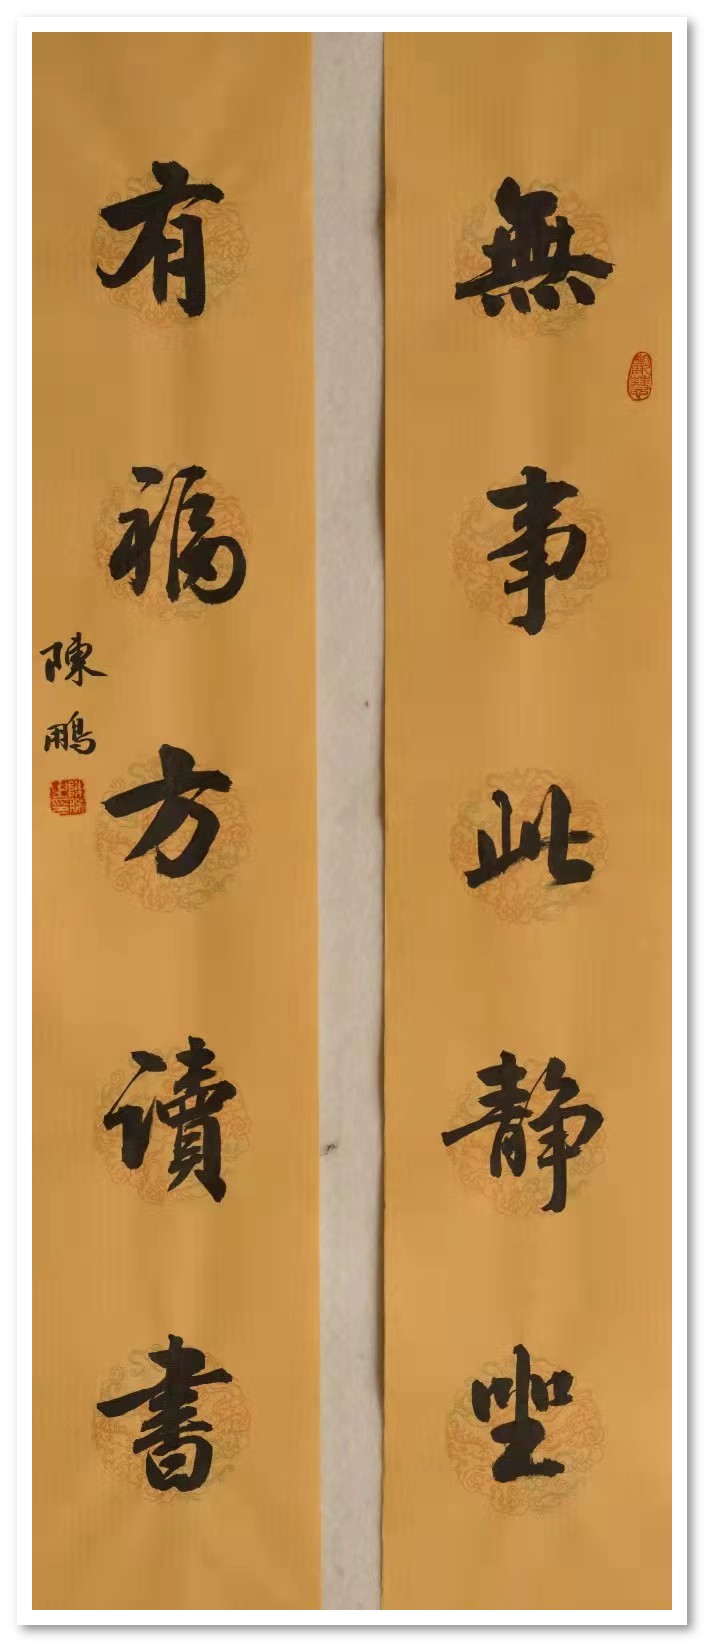 無事此静坐
有福方讀書
陳鵬